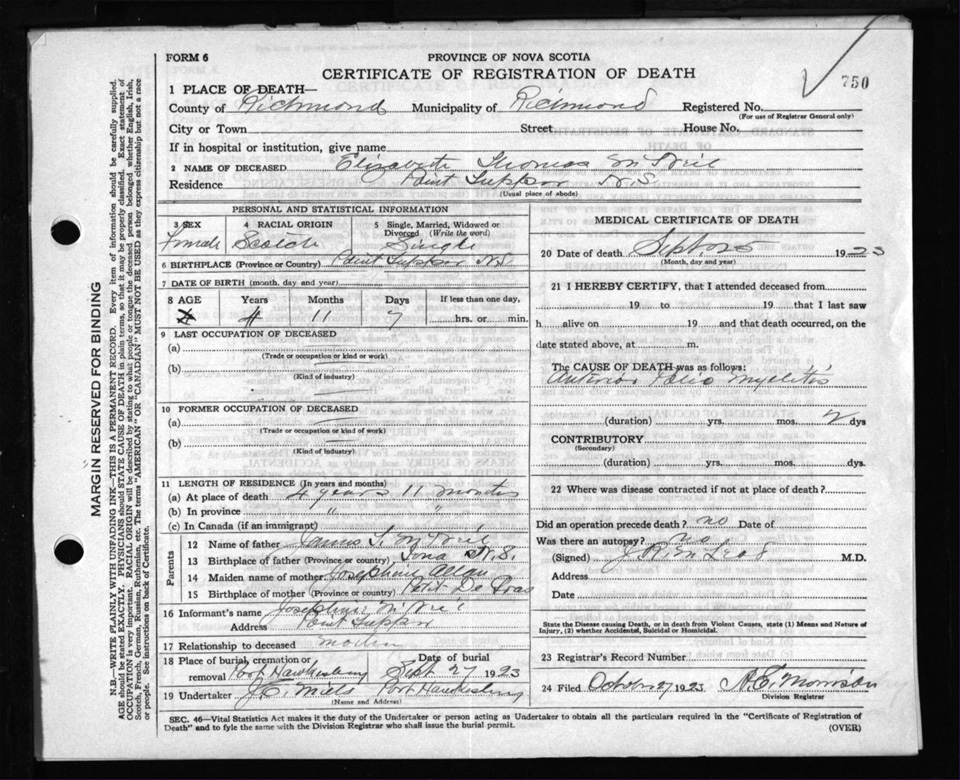 FORM 6
PROVINCE OF NOVA SCOTIA
CERTIFICATE OF REGISTRATION OF DEATH
750
1 PLACE OF DEATH—
County of Richmond Municipality of Richmond Registered No.
(For use of Registrar General only)
City or Town Street House No.
If in hospital or institution, give name
2 NAME OF DECEASED Elizabeth Thomas
Residence Point Tupper N.S.
(Usual place of abode)
PERSONAL AND STATISTICAL INFORMATION
3 SEX 4 RACIAL ORIGIN 5 Single, Married, Widowed or Divorced (Write the word)
Female Scotch Single
6 BIRTHPLACE (Province or Country) Point Tupper NS
7 DATE OF BIRTH (month, day and year)
8 AGE Years Months Days If less than one day,
4 11 7 hrs. or min.
9 LAST OCCUPATION OF DECEASED
(a)
(Trade or occupation or kind or work)
(b)
(Kind of industry)
10 FORMER OCCUPATION OF DECEASED
(a)
(Trade or occupation or kind or work)
(b)
(Kind of industry)
11 LENGTH OF RESIDENCE (In years and months)
(a) At place of death 4 years 11 months
(b) In province " "
(c) In Canada (if an immigrant)
Parents
12 Name of father James
13 Birthplace of father (Province or country) Iona N.S.
14 Maiden name of mother Josephine Allan
15 Birthplace of mother (Province or country) Petit De Gras
16 Informant's name Josephine
Address Point Tupper
17 Relationship to deceased mother
18 Place of burial, cremation or removal Port Hawkesbury Date of burial Sept 27 1923
19 Undertaker J. C. Mills Port Hawkesbury
(Name and Address)
MEDICAL CERTIFICATE OF DEATH
20 Date of death Sept 1923
(Month, day and year)
21 I HEREBY CERTIFY, that I attended deceased from
19 to 19 that I last saw
h alive on 19 and that death occurred, on the
date stated above, at m.
The CAUSE OF DEATH was as follows:
Anterior Polio myelitis
(duration) yrs. mos. 2 dys
CONTRIBUTORY
(Secondary)
(duration) yrs. mos. dys.
22 Where was disease contracted if not at place of death?
Did an operation precede death? no Date of
Was there an autopsy? no
(Signed) M.D.
Address
Date
State the Disease causing Death, or in death from Violent Causes, state (1) Means and Nature of
Injury, (2) whether Accidental, Suicidal or Homicidal.
23 Registrar's Record Number
24 Filed October 27 1923 Morrison
Division Registrar
SEC. 46—Vital Statistics Act makes it the duty of the Undertaker or person acting as Undertaker to obtain all the particulars required in the "Certificate of Registration of
Death" and to fyle the same with the Division Registrar who shall issue the burial permit.
(OVER)
MARGIN RESERVED FOR BINDING
N.B.—WRITE PLAINLY WITH UNFADING INK—THIS IS A PERMANENT RECORD. Every item of information should be carefully supplied.
AGE should be stated EXACTLY. PHYSICIANS should STATE CAUSE OF DEATH in plain terms, so that it may be properly classified. Exact statement of
OCCUPATION is very important. RACIAL ORIGIN will be described by stating to what people or tongue the deceased person belonged whether English, Irish,
Scotch, French, German, Russian, Ruthenian, etc. The terms "AMERICAN" OR "CANADIAN" MUST NOT BE USED as they express citizenship but not a race
or people. See instructions on back of Certificate.